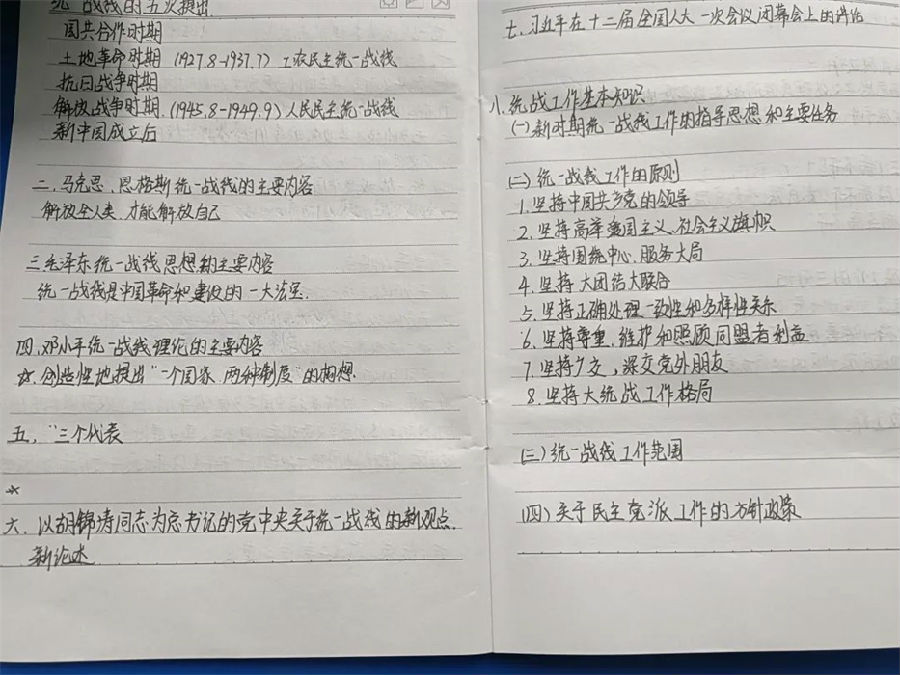 统一战线的五次提出.
国共合作时期
土地革命时期 (1927.8-1937.7) 工农民主统一战线
抗日战争时期
解放战争时期.(1945.8-1949.9) 人民民主统一战线
新中国成立后
二、马克思、恩格斯统一战线的主要内容
解放全人类,才能解放自己
三.毛泽东统一战线思想的主要内容
统一战线是中国革命和建设的一大法宝.
四.邓小平统一战线理论的主要内容
☆.创造性地提出"一个国家,两种制度"的构想.
五、"三个代表
☆
六. 以胡锦涛同志为总书记的党中央关于统一战线的新观点.
新论述
七.习近平在十二届全国人大一次会议闭幕会上的讲话
八.统战工作基本知识
(一)新时期统一战线工作的指导思想和主要任务
(二)统一战线工作的原则
1.坚持中国共产党的领导
2.坚持高举爱国主义、社会主义旗帜
3.坚持围绕中心、服务大局
4.坚持大团结大联合
5.坚持正确处理一致性和多样性关系
6.坚持尊重、维护和照顾同盟者利益
7.坚持广交,深交党外朋友
8.坚持大统战工作格局
(三)统一战线工作范围
(四)关于民主党派工作的方针政策